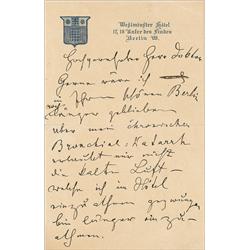 Westminster Hôtel
17, 18 Unter den Linden
Berlin W.
Hochgeehrter Herr Doktor
Gerne wäre ich
noch Ihrem schönen Berlin
länger geblieben
aber mein chronischer
Bronchial-Katarrh
erlaubt mir nicht
die kalten Luft
welche ich im Hôtel
einzuathmen gezwungen
bin länger ein zu-
athmen.